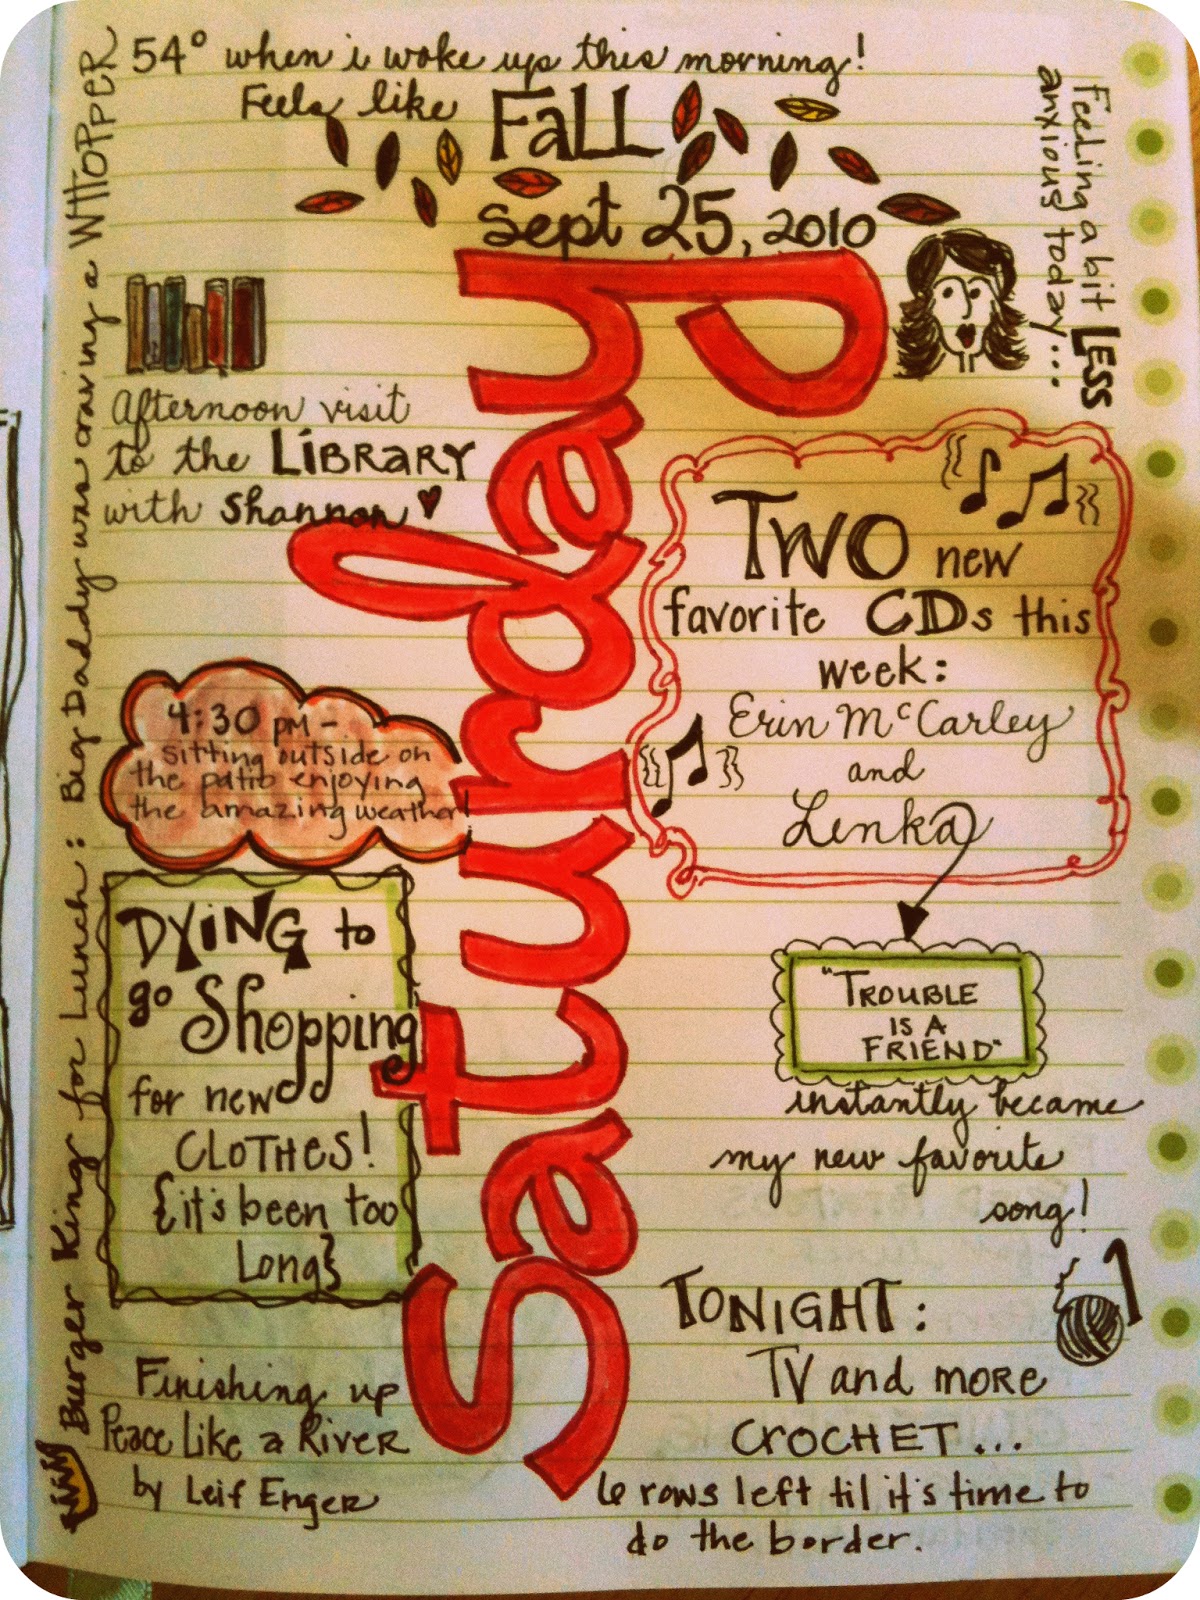 54° when i woke up this morning!
Feels like FaLL
Sept 25, 2010
Feeling a bit LESS
anxious today...
Saturday
Afternoon visit
to the LiBRARY
with Shannon
Two new
favorite CDs this
week:
Erin McCarley
and
Lenka
"TROUBLE
IS A
FRIEND"
instantly became
my new favorite
song!
4:30 pm -
sitting outside on
the patio enjoying
the amazing weather!
DYiNG to
go Shopping
for new
CLOTHES!
{it's been too
Long}
Finishing up
Peace Like a River
by Leif Enger
TONIGHT:
TV and more
CROCHET...
6 rows left til it's time to
do the border.
Burger King for Lunch: Big Daddy was craving a WHOPPER